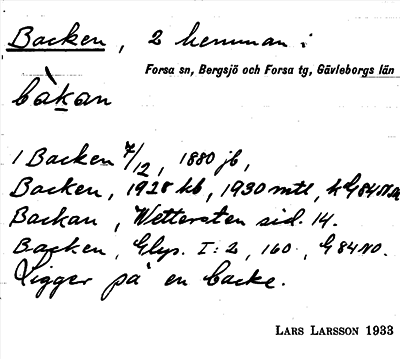 Backen, 2 hemman:
Forsa sn, Bergsjö och Forsa tg, Gävleborgs län
bàkan
1 Backen 7/12, 1880 jb,
Backen, 1928 kb, 1930 mtl,
Backan, Wettersten sid. 14.
Backen, Glys. I:2, 160, G84NO.
Ligger på en backe.
LARS LARSSON 1933